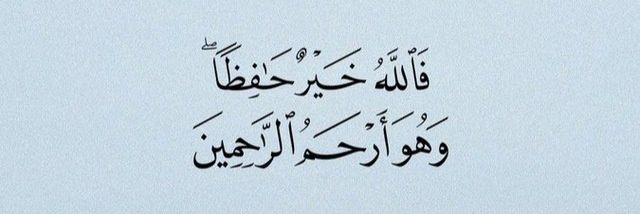 فَٱللَّهُ خَيْرٌ حَٰفِظًا ۖ
وَهُوَ أَرْحَمُ ٱلرَّٰحِمِينَ